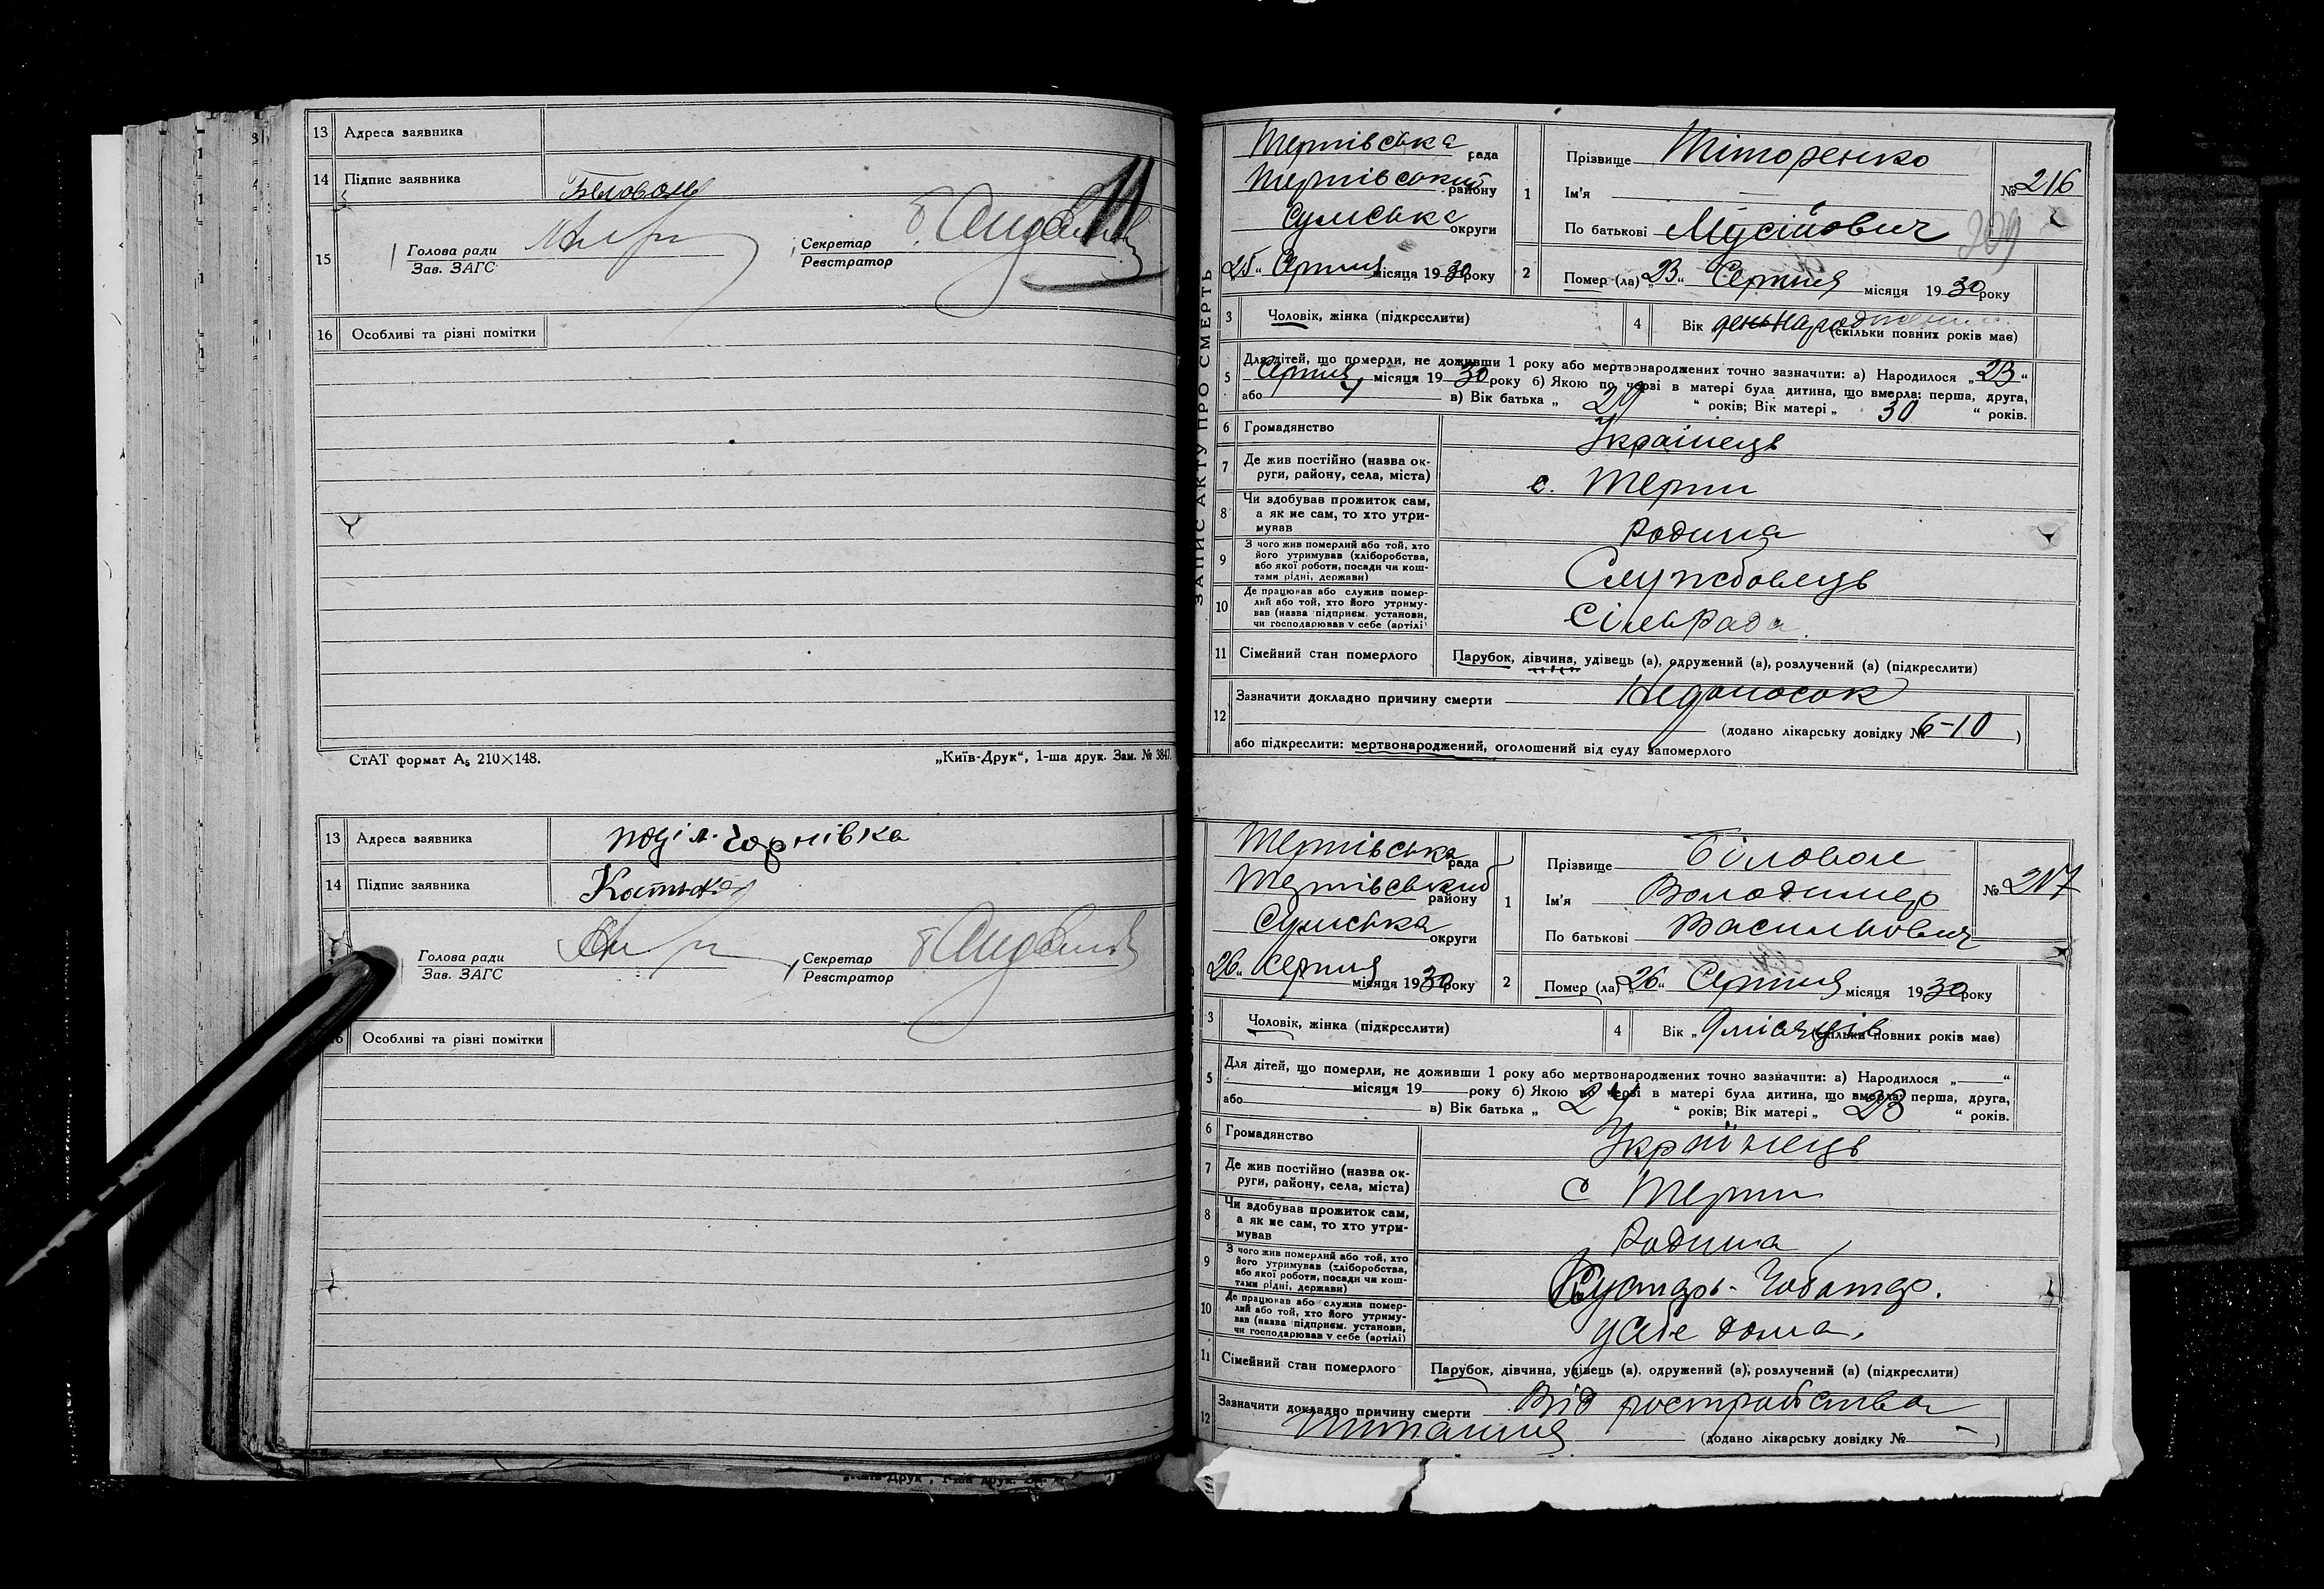 13 Адреса заявника
14 Підпис заявника Біловол
15 Голова ради Секретар
Зав. ЗАГС Реєстратор
16 Особливі та різні помітки
СтАТ формат А₅ 210×148. „Київ-Друк“, 1-ша друк. Зам. № 3847.
13 Адреса заявника
14 Підпис заявника
Голова ради Секретар
Зав. ЗАГС Реєстратор
Особливі та різні помітки
ЗАПИС АКТУ ПРО СМЕРТЬ
Тернівська рада
Тернівський району
Сумська округи
25 Серпня місяця 1930 року
1 Прізвище Тіторенко
Ім'я
По батькові Мусійович
№ 216
209
2 Помер (ла) „23“ Серпня місяця 1930 року
3 Чоловік, жінка (підкреслити)
4 Вік день народження (скільки повних років має)
5 Для дітей, що померли, не доживши 1 року або мертвонароджених точно зазначити: а) Народилося „23“
Серпня місяця 1930 року б) Якою по черзі в матері була дитина, що вмерла: перша, друга,
або в) Вік батька „ 29 “ років; Вік матері „ 30 “ років.
6 Громадянство Українець
7 Де жив постійно (назва округи, району, села, міста) с. Терни
8 Чи здобував прожиток сам, а як не сам, то хто утримував родина
9 З чого жив померлий або той, хто його утримував (хліборобства, або якої роботи, посади чи коштами рідні, держави) Службовець
10 Де працював або служив померлий або той, хто його утримував (назва підприєм. установи, чи господарював у себе (артілі) Сільрада
11 Сімейний стан померлого Парубок, дівчина, удівець (а), одружений (а), розлучений (а) (підкреслити)
12 Зазначити докладно причину смерти Недоносок
(додано лікарську довідку № 6-10 )
або підкреслити: мертвонароджений, оголошений від суду запомерлого
Тернівська рада
Тернівський району
Сумська округи
26 серпня місяця 1930 року
1 Прізвище Біловол
Ім'я Володимер
По батькові Васильович
№ 217
2 Помер (ла) „26“ Серпня місяця 1930 року
3 Чоловік, жінка (підкреслити)
4 Вік „ 9 місяців (скільки повних років має)
5 Для дітей, що померли, не доживши 1 року або мертвонароджених точно зазначити: а) Народилося „ “
місяця 19 року б) Якою по черзі в матері була дитина, що вмерла: перша, друга,
або в) Вік батька „ 24 “ років; Вік матері „ 23 “ років.
6 Громадянство Українець
7 Де жив постійно (назва округи, району, села, міста) с Терни
8 Чи здобував прожиток сам, а як не сам, то хто утримував Родина
9 З чого жив померлий або той, хто його утримував (хліборобства, або якої роботи, посади чи коштами рідні, держави) Кустарь-Чоботар.
10 Де працював або служив померлий або той, хто його утримував (назва підприєм. установи, чи господарював у себе (артілі) у себе дома.
11 Сімейний стан померлого Парубок, дівчина, удівець (а), одружений (а), розлучений (а) (підкреслити)
12 Зазначити докладно причину смерти Від
(додано лікарську довідку № - )